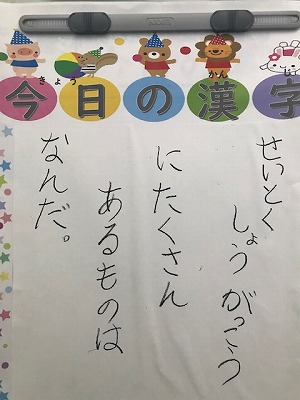 今日の漢字
きょう
かん
せいとく
しょうがっこう
にたくさん
あるものは
なんだ。